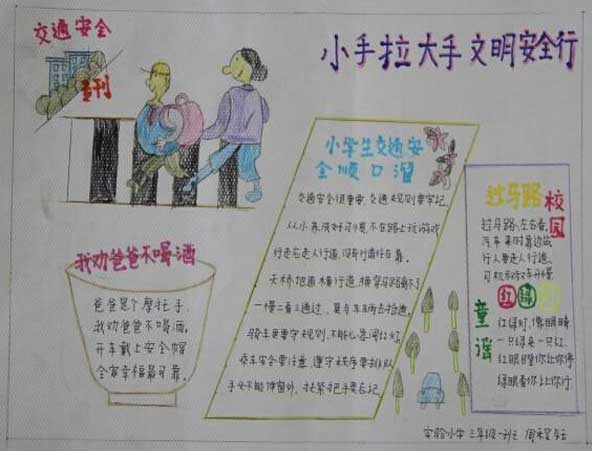 交通安全
专刊
小手拉大手文明安全行
小学生交通安
全顺口溜
交通安全很重要,交通规则要牢记,
从小养成好习惯,不在路上玩游戏
行走应走人行道,没有行道往右靠.
天桥地道横行道,横穿马路离不了
一慢二看三通过,莫与车辆去抢道.
骑车更要守规则,不能心急闯红灯,
乘车安全要注意,遵守秩序要排队
手头不能伸窗外,扶紧把手莫忘记.
我劝爸爸不喝酒
爸爸是个摩托手,
我劝爸爸不喝酒,
开车戴上安全帽
全家幸福最可靠.
过马路
校园
童谣
过马路,左右看,
汽车来时靠边站
行人要走人行道.
红绿
红绿灯,像眼睛
一只绿来一只红.
红眼瞪你让你停
绿眼看你让你行.
实验小学 三年级一班